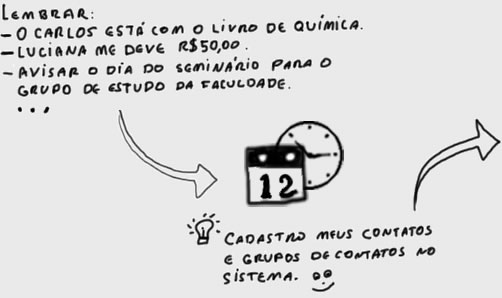 LEMBRAR:
- O CARLOS ESTÁ COM O LIVRO DE QUÍMICA.
- LUCIANA ME DEVE R$50,00.
- AVISAR O DIA DO SEMINÁRIO PARA O
GRUPO DE ESTUDO DA FACULDADE.
...
12
CADASTRO MEUS CONTATOS
E GRUPOS DE CONTATOS NO
SISTEMA.